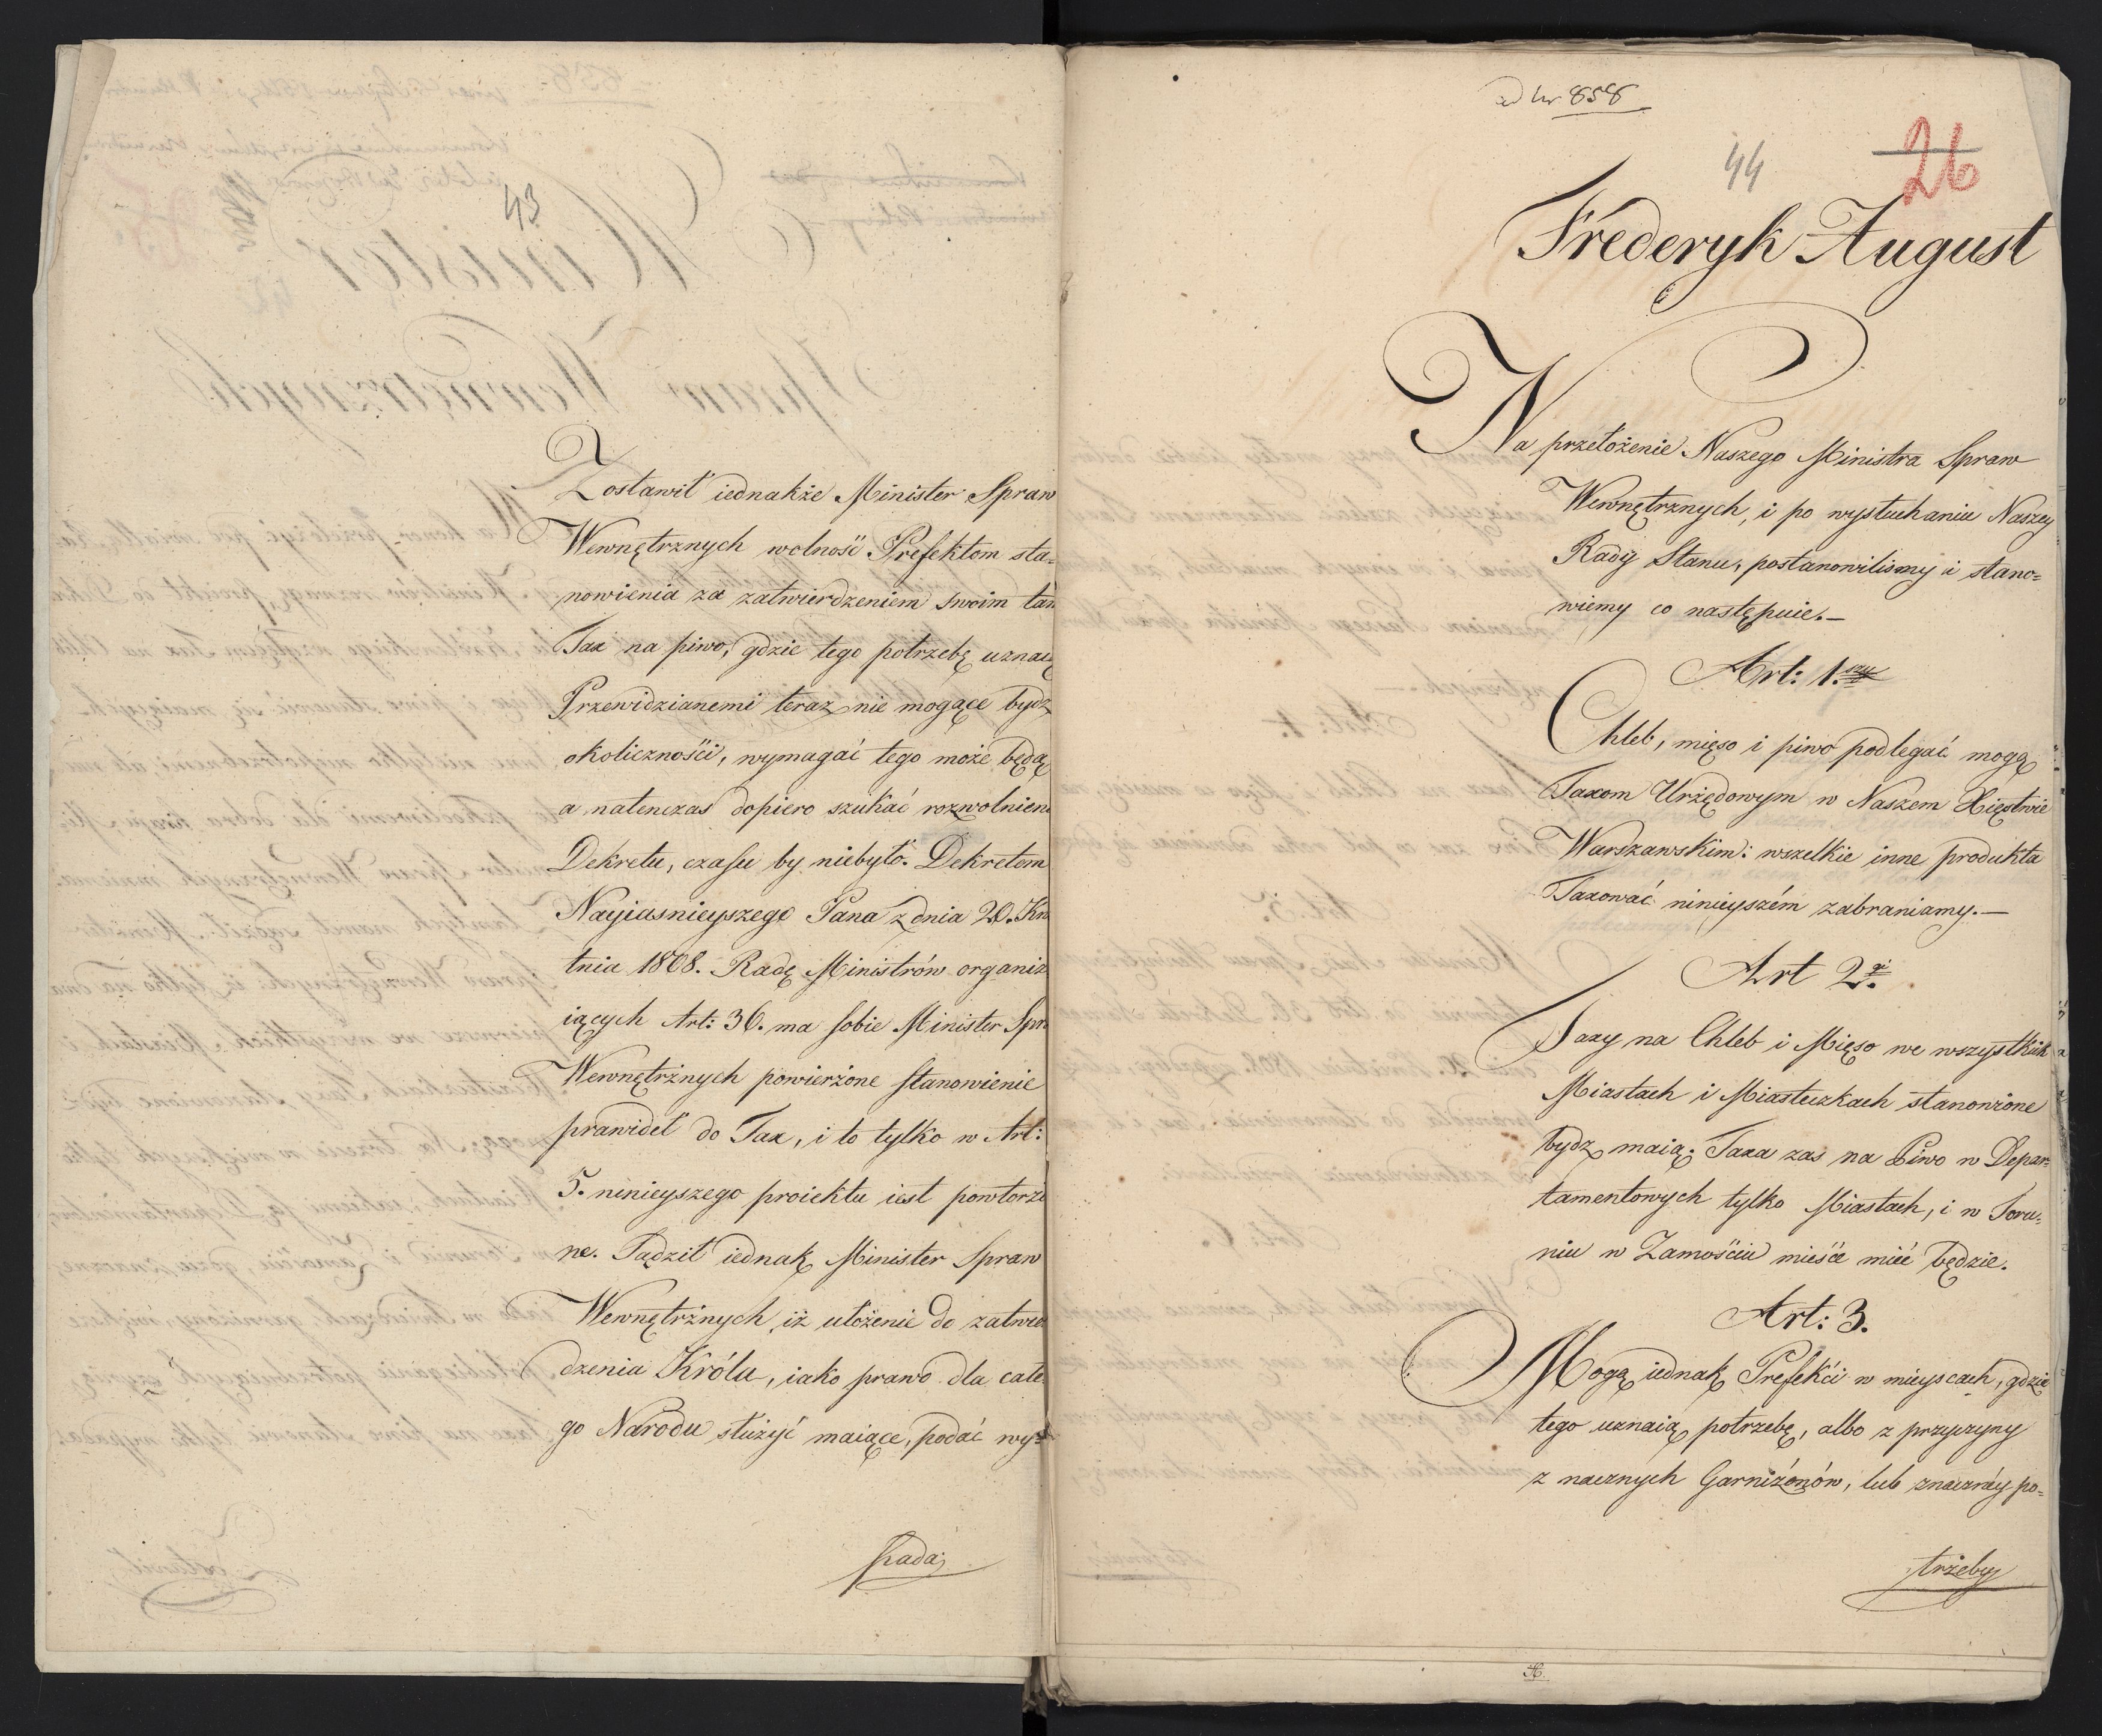 43
Zostawił iednakże Minister Spraw
Wewnętrznych wolność Prefektom sta-
nowienia za zatwierdzeniem swoim tam
Tax na piwo, gdzie tego potrzebę uznaią
Przewidzianemi teraz nie mogące bydz
okoliczności, wymagać tego może będą
a natenczas dopiero szukać rozwolnien
Dekretu, czasu by niebyło. Dekretem
Nayiasnieyszego Pana z dnia 20. Kw
tnia 1808. Radę Ministrów organiz
iących Art: 36. ma sobie Minister Spr
Wewnętrżnych powierżone stanowienie
prawideł do Tax, i to tylko w Art:
5. ninieyszego proiektu iest powtorzo
ne. Sądził iednak Minister Spraw
Wewnętrżnych, iż ułożenie do zatwier
dzenia Królu, iako prawo dla całe
go Narodu służyć maiące, podać wy=
pada;
ad Nr 858
44
26
Fréderyk August
Na przełożenie Naszego Ministra Spraw
Wewnętrznych, i po wysłuchaniu Naszey
Rady Stanu, postanowilismy i stano=
wiemy co następuie.—
Art: 1.szy
Chleb, mięso i piwo podlegać mogą
Taxom Urzędowym w Naszem Xięstwie
Warszawskim: wszelkie inne produkta
Taxować ninieyszém zabraniamy.—
Art 2.gi
Taxy na Chleb i Mięso we wszystkich
Miastach i Miasteczkach stanowione
bydz maią. Taxa zas na Piwo w Depar=
tamentowych tylko Miastach, i w Toru=
niu w Zamościu mieśce mieć będzie.
Art: 3.
Mogą iednak Prefekci w mieyscach, gdzie
tego uznaią potrzebę, albo z przyczyny
z nacznych Garniżonów, lub znaczney po=
trżeby